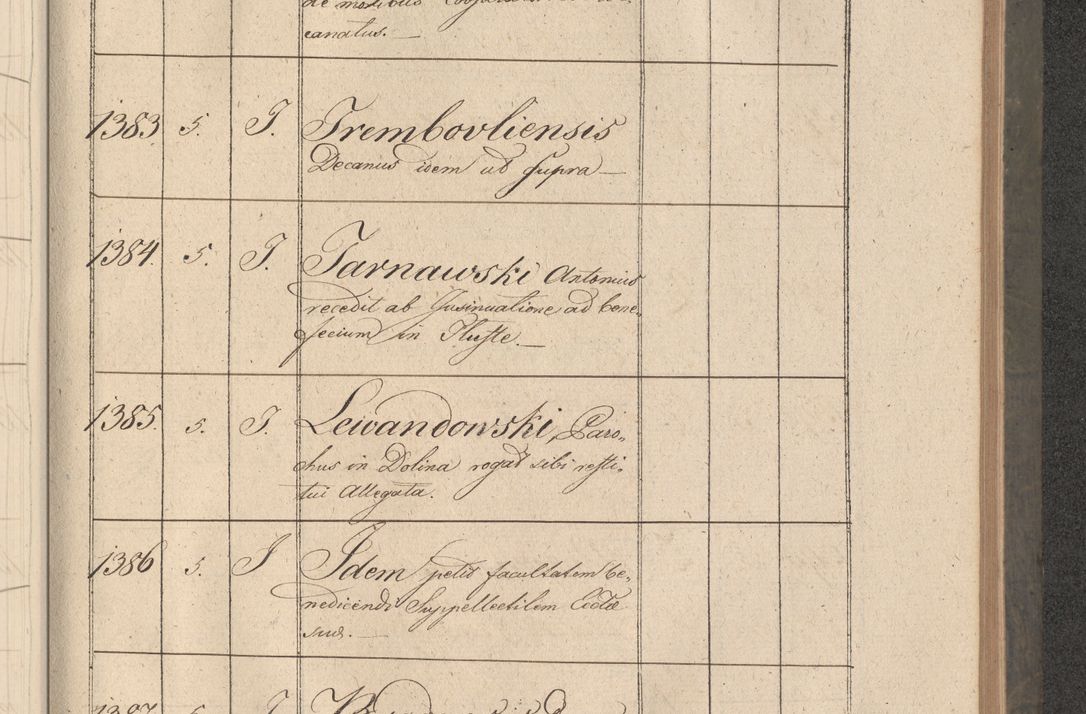 canatus.
1383 5. J. Trembovliensis
Decanus idem ut Supra
1384. 5. J. Tarnawski Antonius
recedit ab Insinuatione ad bene„
ficium in Tluste.
1385. 5. J. Lewandowski, Paro„
chus in Dolina rogat sibi resti„
tui Allegata.
1386 5. J Idem petit facultatem be„
nedicendi Suppellectilem Eccłæ
suæ.